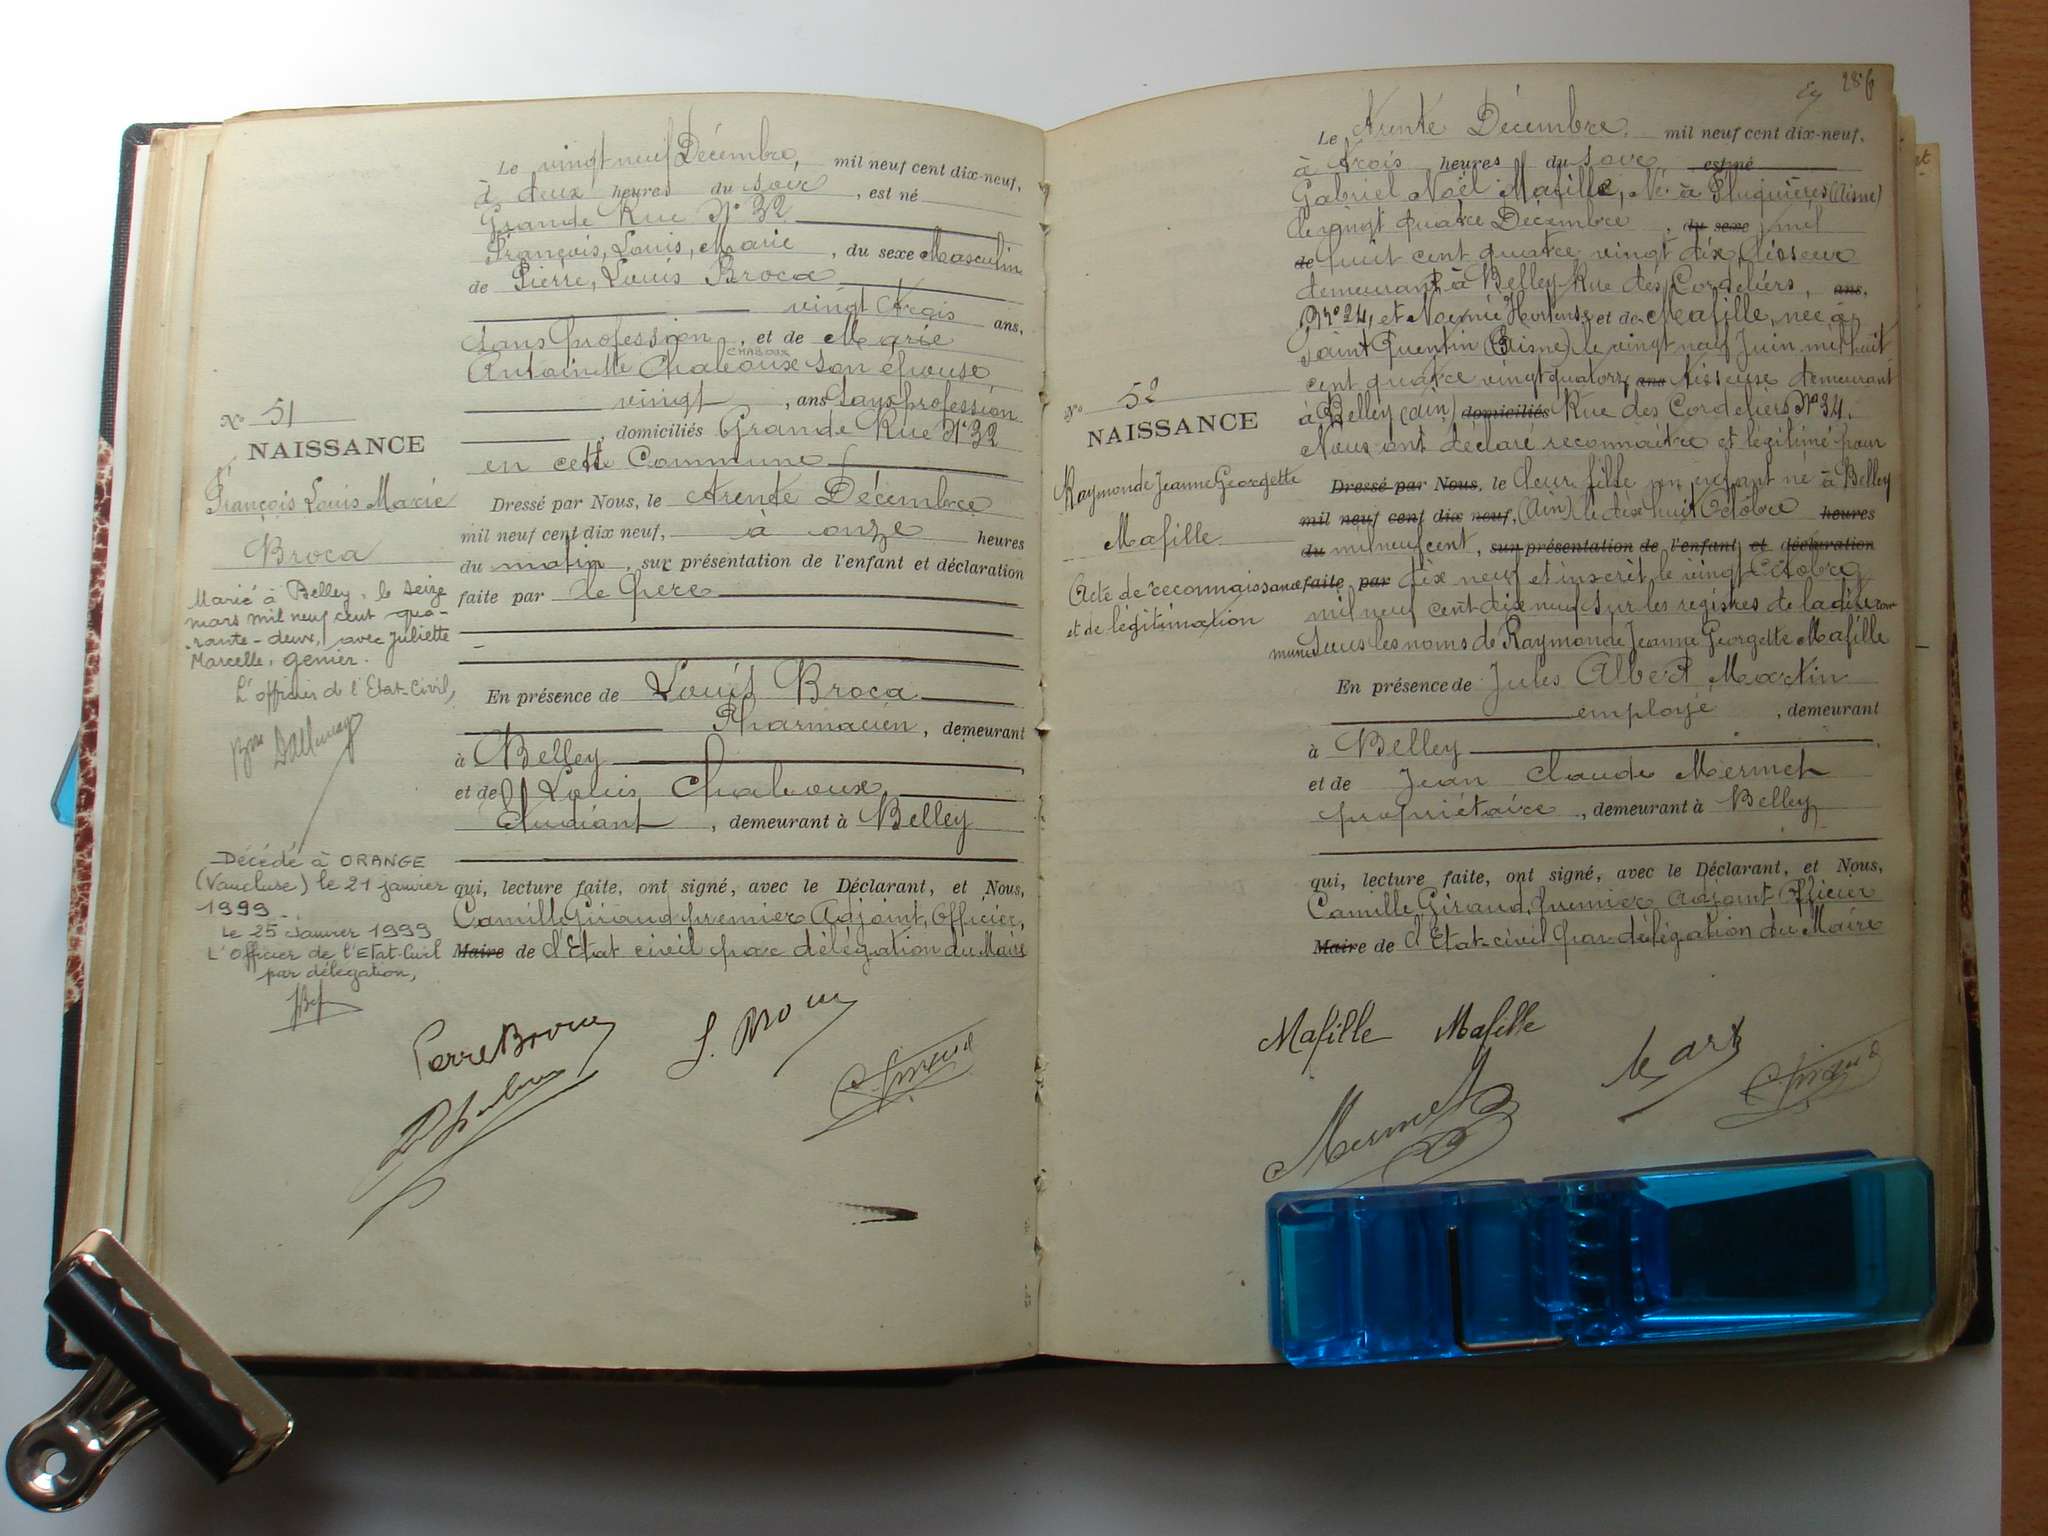 Le vingt neuf Décembre, mil neuf cent dix-neuf,
à deux heures du soir, est né
Grande Rue N° 32
François, Louis, Marie, du sexe Masculin
de Pierre, Louis Broca
vingt trois ans,
sans profession, et de Marie
CHABOUX
Antoinette Chaboux son épouse,
vingt, ans sans profession
, domiciliés Grande Rue N° 32
en cette Commune
N° 51
NAISSANCE
François Louis Marie
Broca
Dressé par Nous, le trente Décembre
mil neuf cent dix neuf, à onze heures
du matin, sur présentation de l'enfant et déclaration
faite par le père
Marié à Belley, le seize
mars mil neuf cent qua-
rante-deux, avec Juliette
Marcelle, Genier.
L'officier de l'Etat-Civil,
En présence de Louis Broca
Pharmacien, demeurant
à Belley
et de Louis Chaboux
Etudiant, demeurant à Belley
Décédé à ORANGE
(Vaucluse) le 21 janvier
1999
Le 25 Janvier 1999
L'Officier de l'Etat-Civil
par délégation,
qui, lecture faite, ont signé, avec le Déclarant, et Nous,
Camille Giraud premier Adjoint, Officier,
Maire de l'Etat civil par délégation du Maire
Pierre Broca
L. Broca
286
Le trente Décembre mil neuf cent dix-neuf,
à trois heures du soir est né
Gabriel Noël Mafille, Né à Fluquières (Aisne)
le vingt quatre Décembre, du sexe mil
de huit cent quatre vingt dix, tisseur
demeurant à Belley Rue des Cordeliers, ans,
N° 24, et Noémie Hortense et de Mafille, née à
Saint Quentin (Aisne) le vingt neuf Juin mil huit
cent quatre vingt quatorze ans tisseuse demeurant
à Belley (Ain) domiciliés Rue des Cordeliers N° 34.
Nous ont déclaré reconnaître et légitimé pour
N° 52
NAISSANCE
Raymonde Jeanne Georgette
Mafille
Acte de reconnaissance
et de légitimation
Dressé par Nous, le leur fille un enfant né à Belley
mil neuf cent dix neuf, (Ain) le dix huit Octobre heures
du mil neuf cent, sur présentation de l'enfant et déclaration
faite par dix neuf et inscrit le vingt Octobre
mil neuf cent dix neuf sur les registres de la dite com
mune sous les noms de Raymonde Jeanne Georgette Mafille
En présence de Jules Albert Martin
employé, demeurant
à Belley
et de Jean Claude Mermet
propriétaire, demeurant à Belley
qui, lecture faite, ont signé, avec le Déclarant, et Nous,
Camille Giraud, premier Adjoint Officier
Maire de l'Etat-civil par délégation du Maire
Mafille Mafille
Mermet